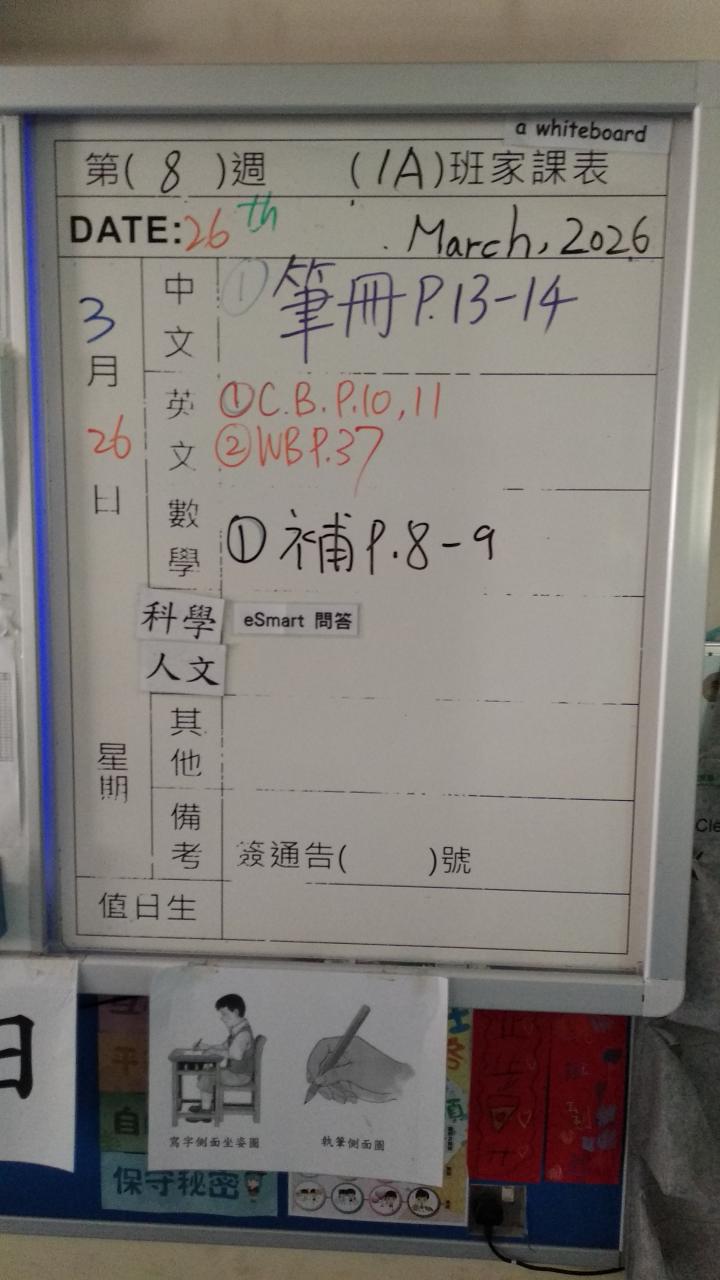 a whiteboard
第( 8 )週 (1A)班家課表
DATE: 26th March, 2026
3月26日
星期
中文 ① 筆冊 P.13-14
英文 ① C.B. P.10, 11
② WB P.37
數學 ① 補 P.8-9
科學 eSmart 問答
人文
其他
備考 簽通告( )號
值日生
寫字側面坐姿圖
執筆側面圖
保守秘密